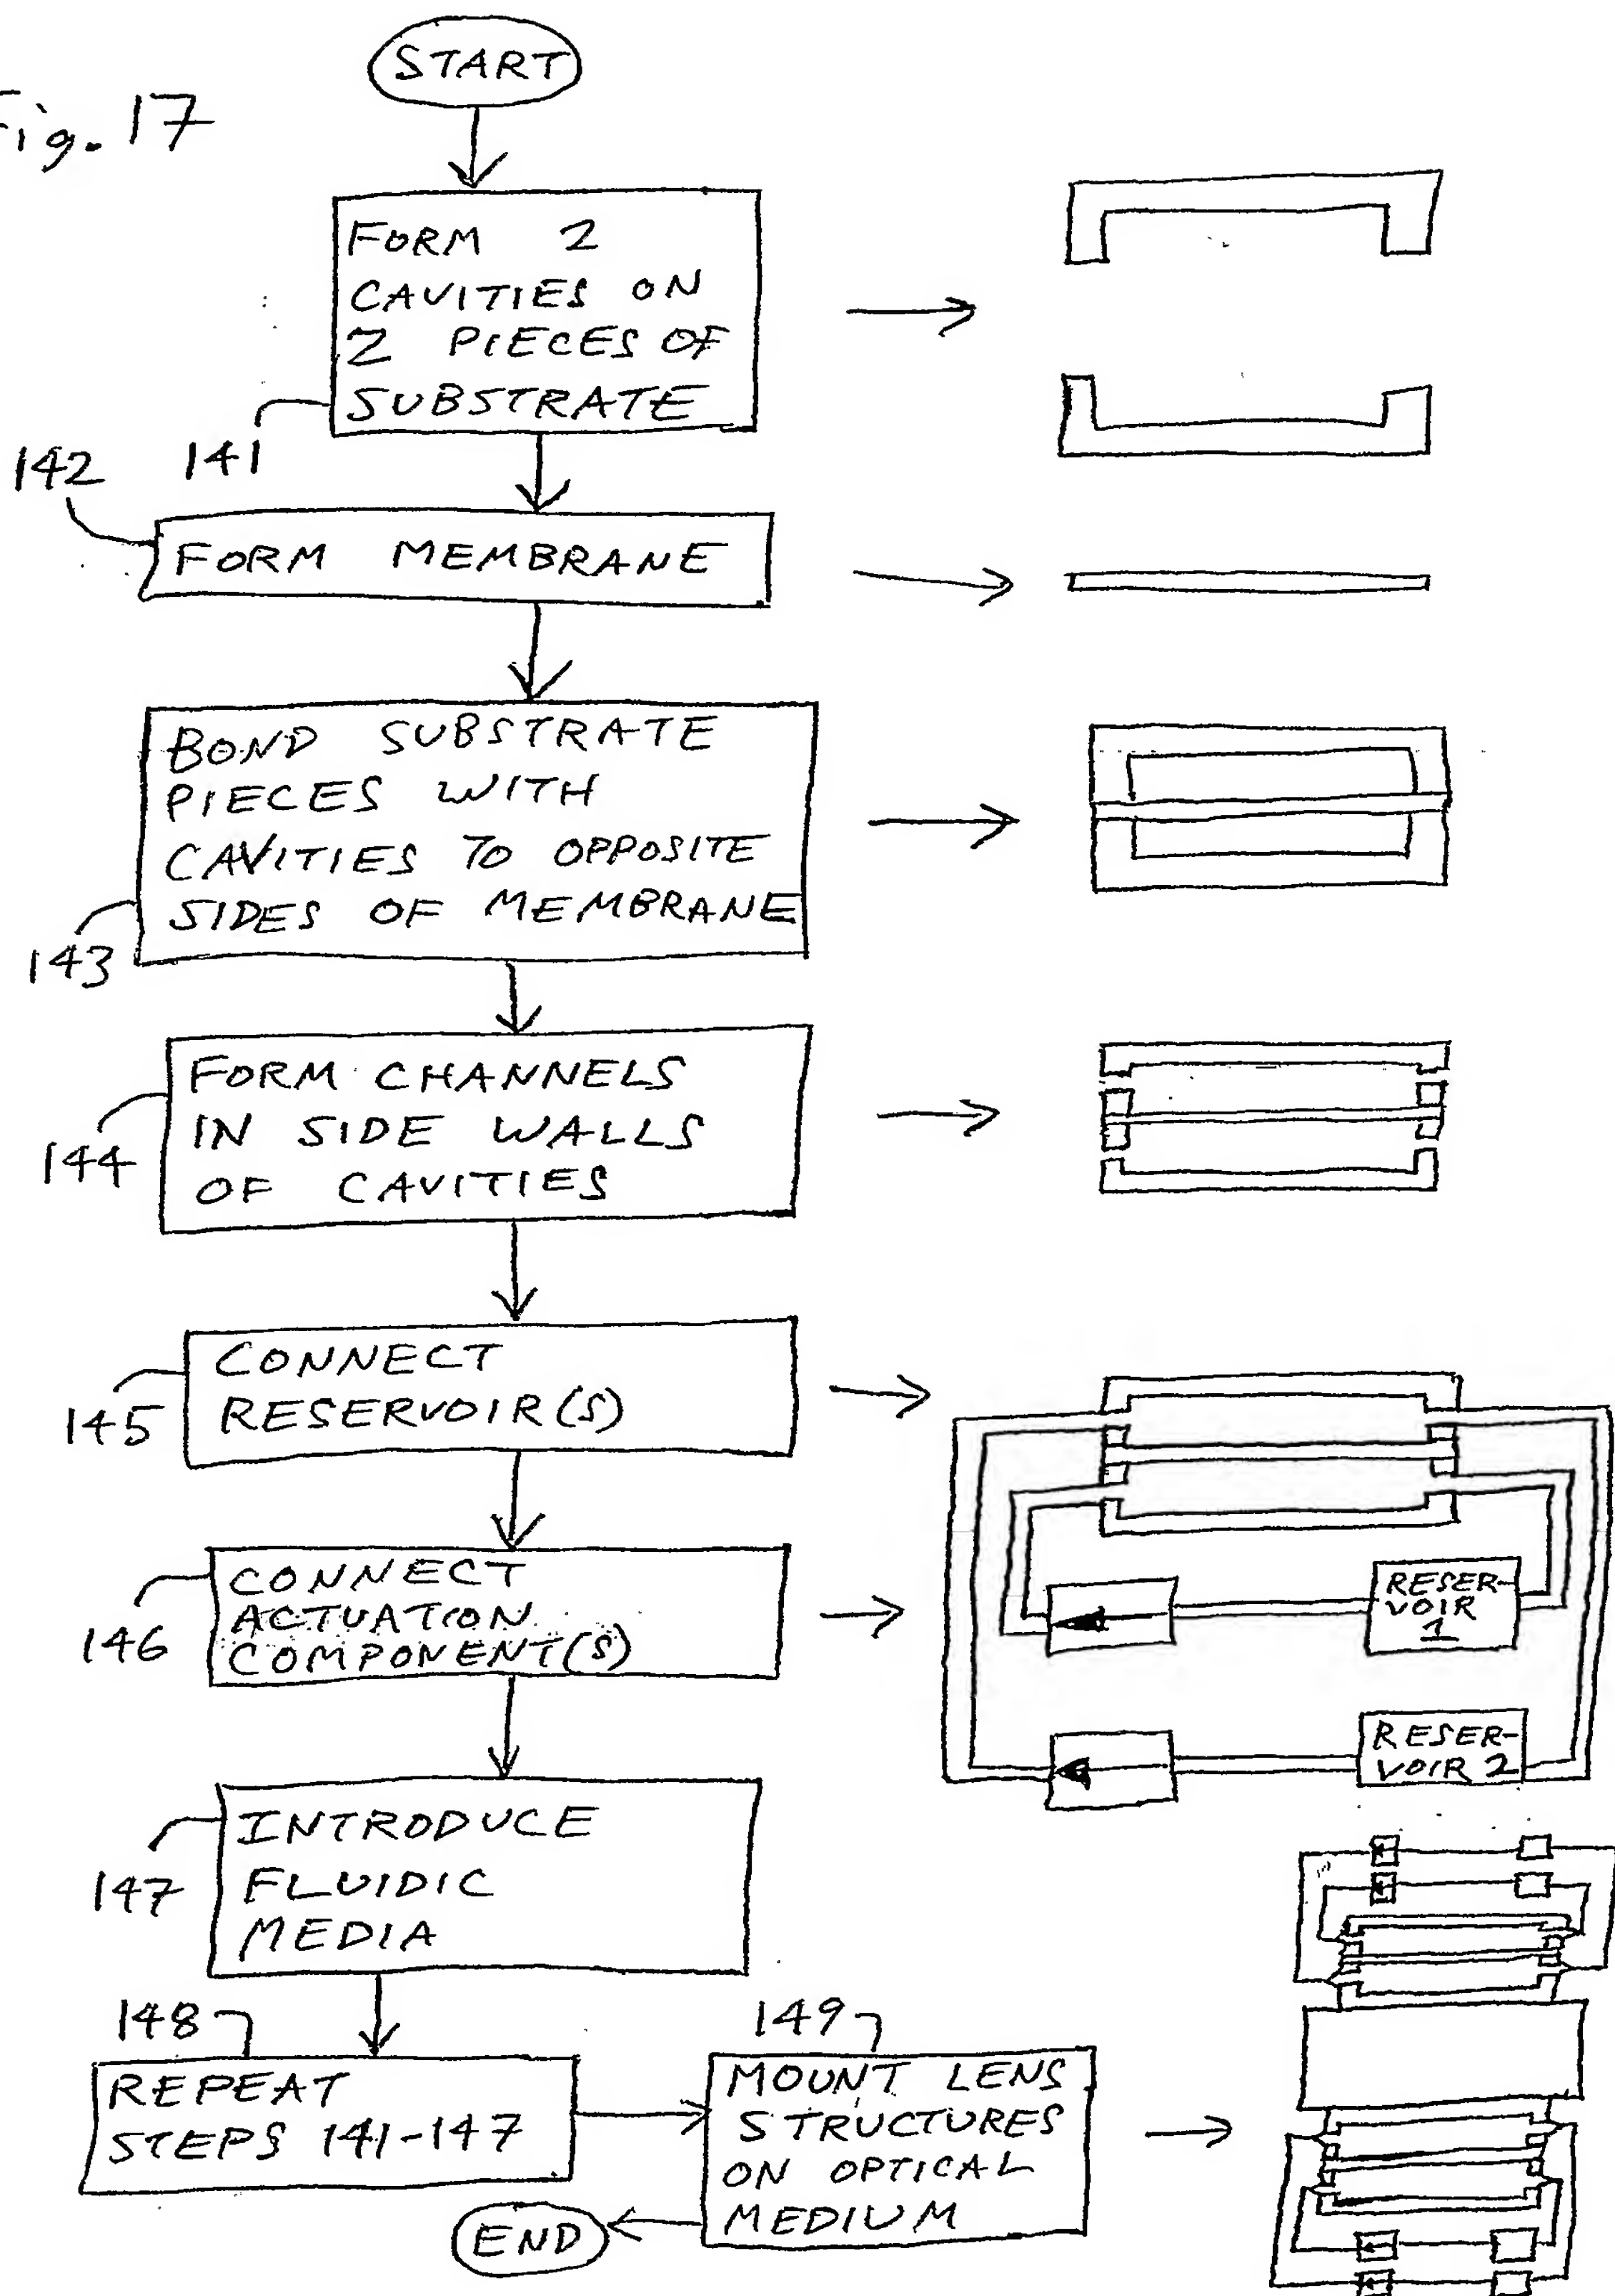 Fig. 17
START
FORM 2
CAVITIES ON
2 PIECES OF
SUBSTRATE
141
142
FORM MEMBRANE
BOND SUBSTRATE
PIECES WITH
CAVITIES TO OPPOSITE
SIDES OF MEMBRANE
143
FORM CHANNELS
IN SIDE WALLS
OF CAVITIES
144
CONNECT
RESERVOIR(S)
145
CONNECT
ACTUATION
COMPONENT(S)
146
RESER-
VOIR
1
RESER-
VOIR 2
INTRODUCE
FLUIDIC
MEDIA
147
148
REPEAT
STEPS 141-147
149
MOUNT LENS
STRUCTURES
ON OPTICAL
MEDIUM
END